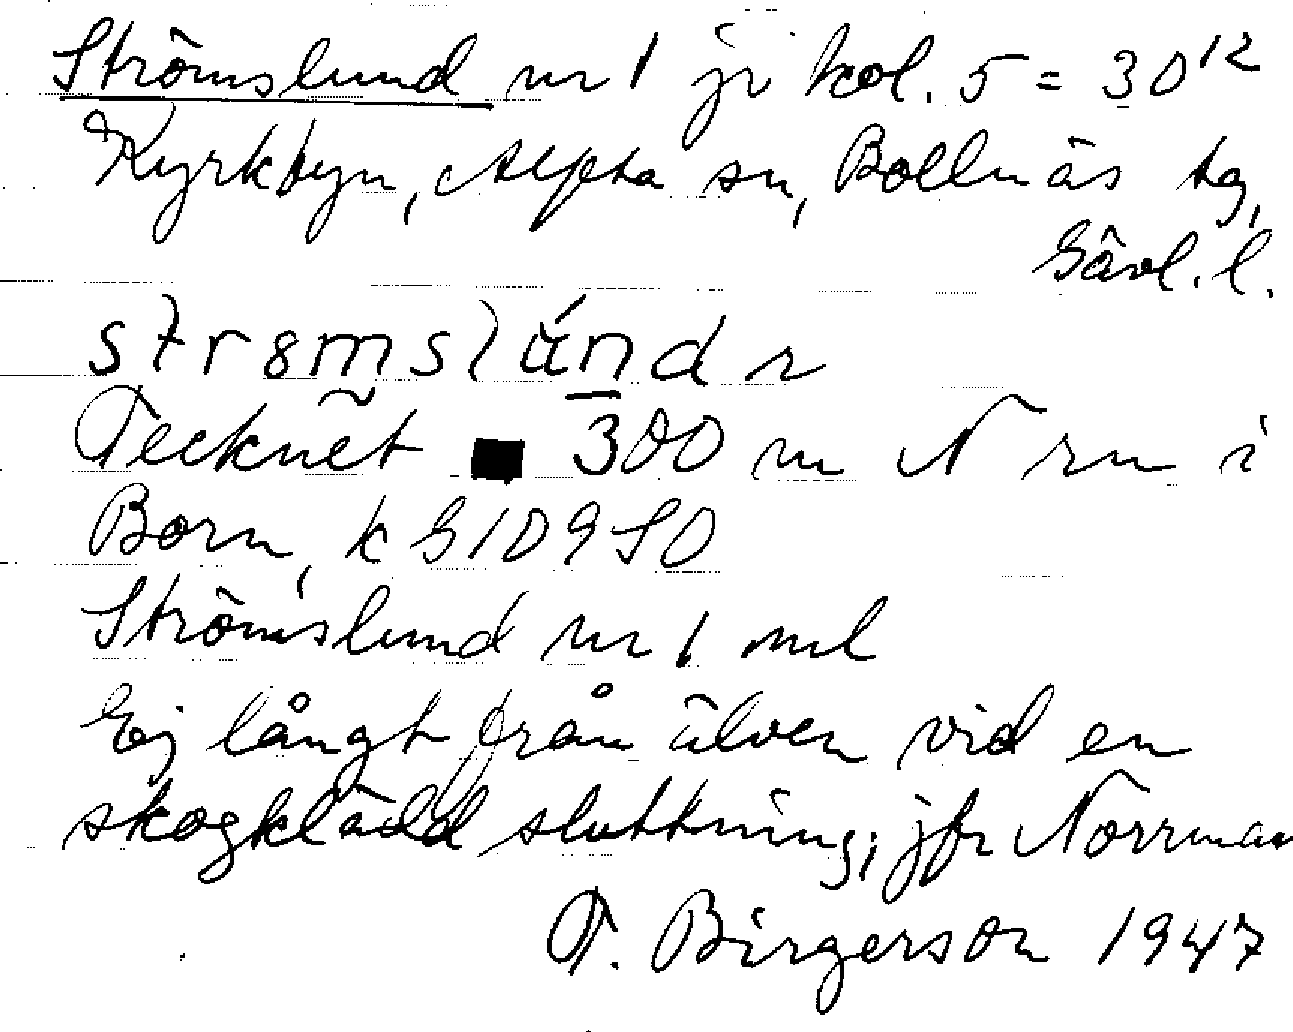 Strömslund nr 1 jr kol. 5 = 30¹²
Kyrkbyn, Alfta sn, Bollnäs tg,
Gävl. l.
Tecknet ■ 300 m N rm i
Born, k G 10 9 S0
Strömslund nr 1 mil
Ej långt från älven vid en
skogklädd sluttning; jfr Norrman
T. Birgerson 1947